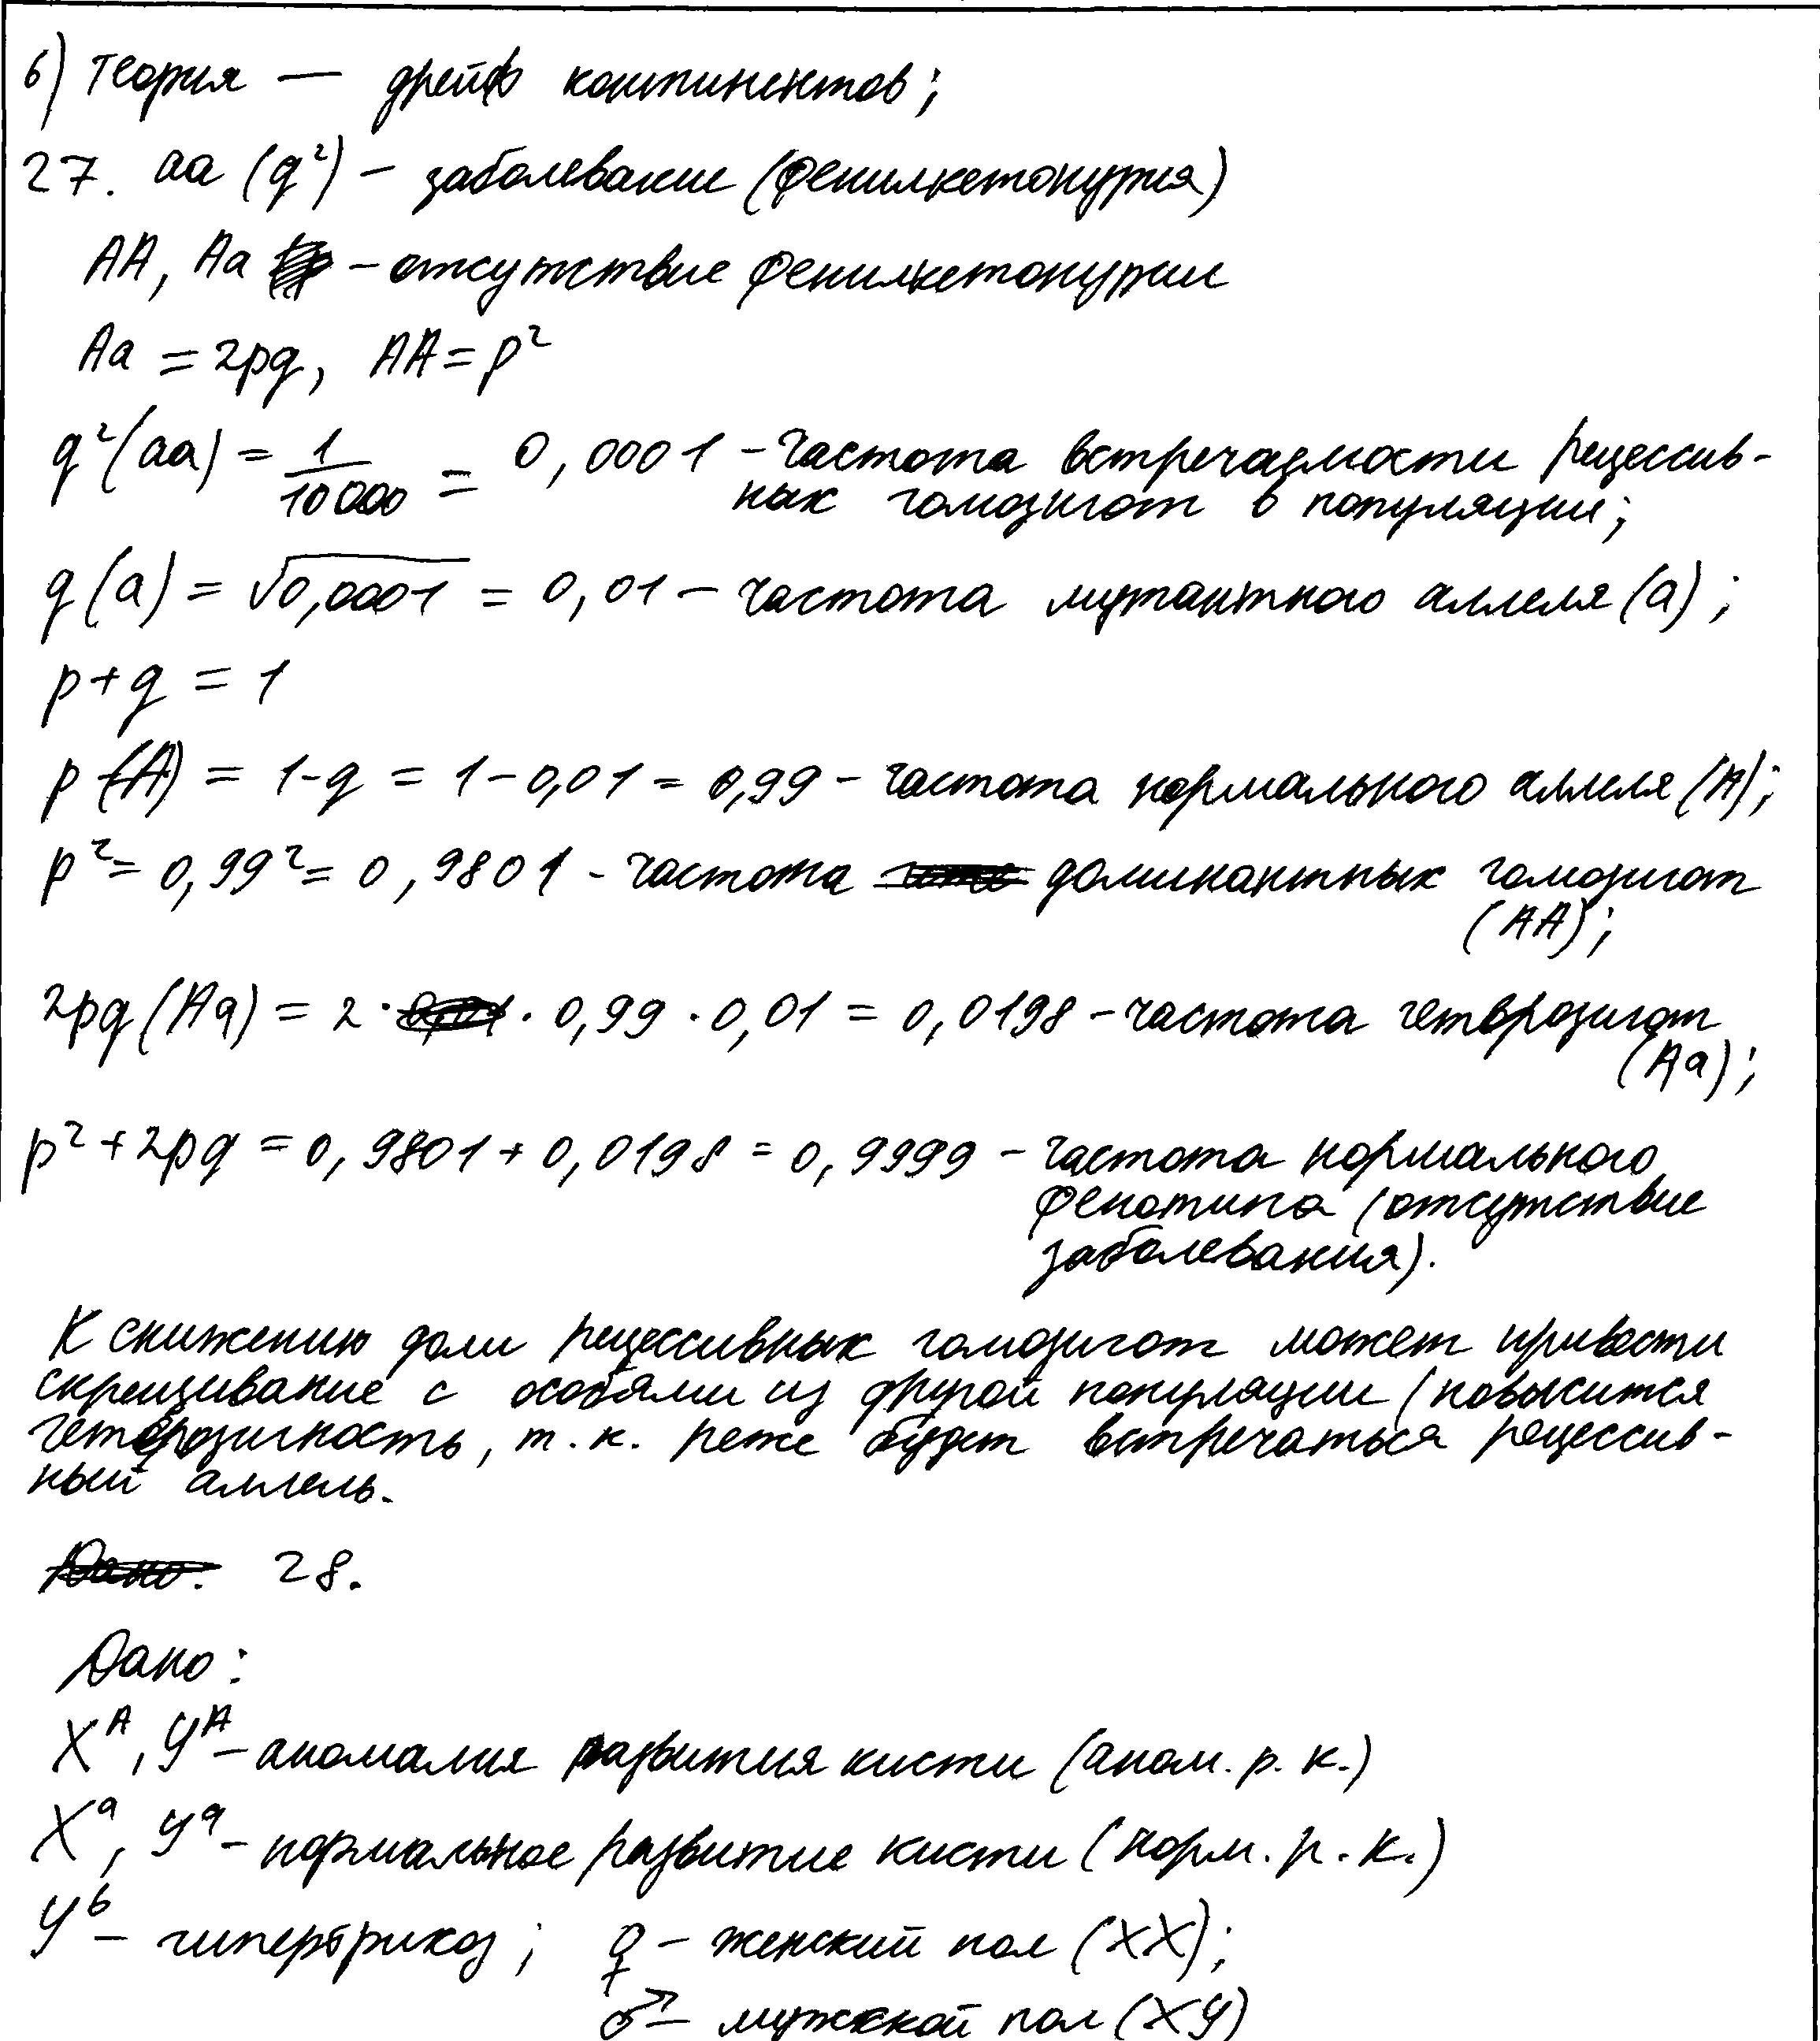 6) Теория — дрейф континентов;
27. aa (q²) – заболевание (фенилкетонурия)
AA, Aa – отсутствие фенилкетонурии
Aa = 2pq, AA = p²
q²(aa) = 1/10000 = 0,0001 – частота встречаемости рецессив-
ных гомозигот в популяции;
q(a) = √0,0001 = 0,01 – частота мутантного аллеля (a);
p+q = 1
p(A) = 1-q = 1-0,01 = 0,99 – частота нормального аллеля (A);
p² = 0,99² = 0,9801 - частота доминантных гомозигот
(AA);
2pq (Aa) = 2 · 0,99 · 0,01 = 0,0198 – частота гетерозигот
(Aa);
p² + 2pq = 0,9801 + 0,0198 = 0,9999 – частота нормального
фенотипа (отсутствие
заболевания).
К снижению доли рецессивных гомозигот может привести
скрещивание с особями из другой популяции (повысится
гетерозигность, т.к. реже будет встречаться рецессив-
ный аллель.
28.
Дано:
X^A, Y^A – аномалия развития кисти (аном. р. к.)
X^a, Y^a – нормальное развитие кисти (норм. р. к.)
Y^b – гипертрихоз; ♀ – женский пол (XX);
♂ – мужской пол (XY)